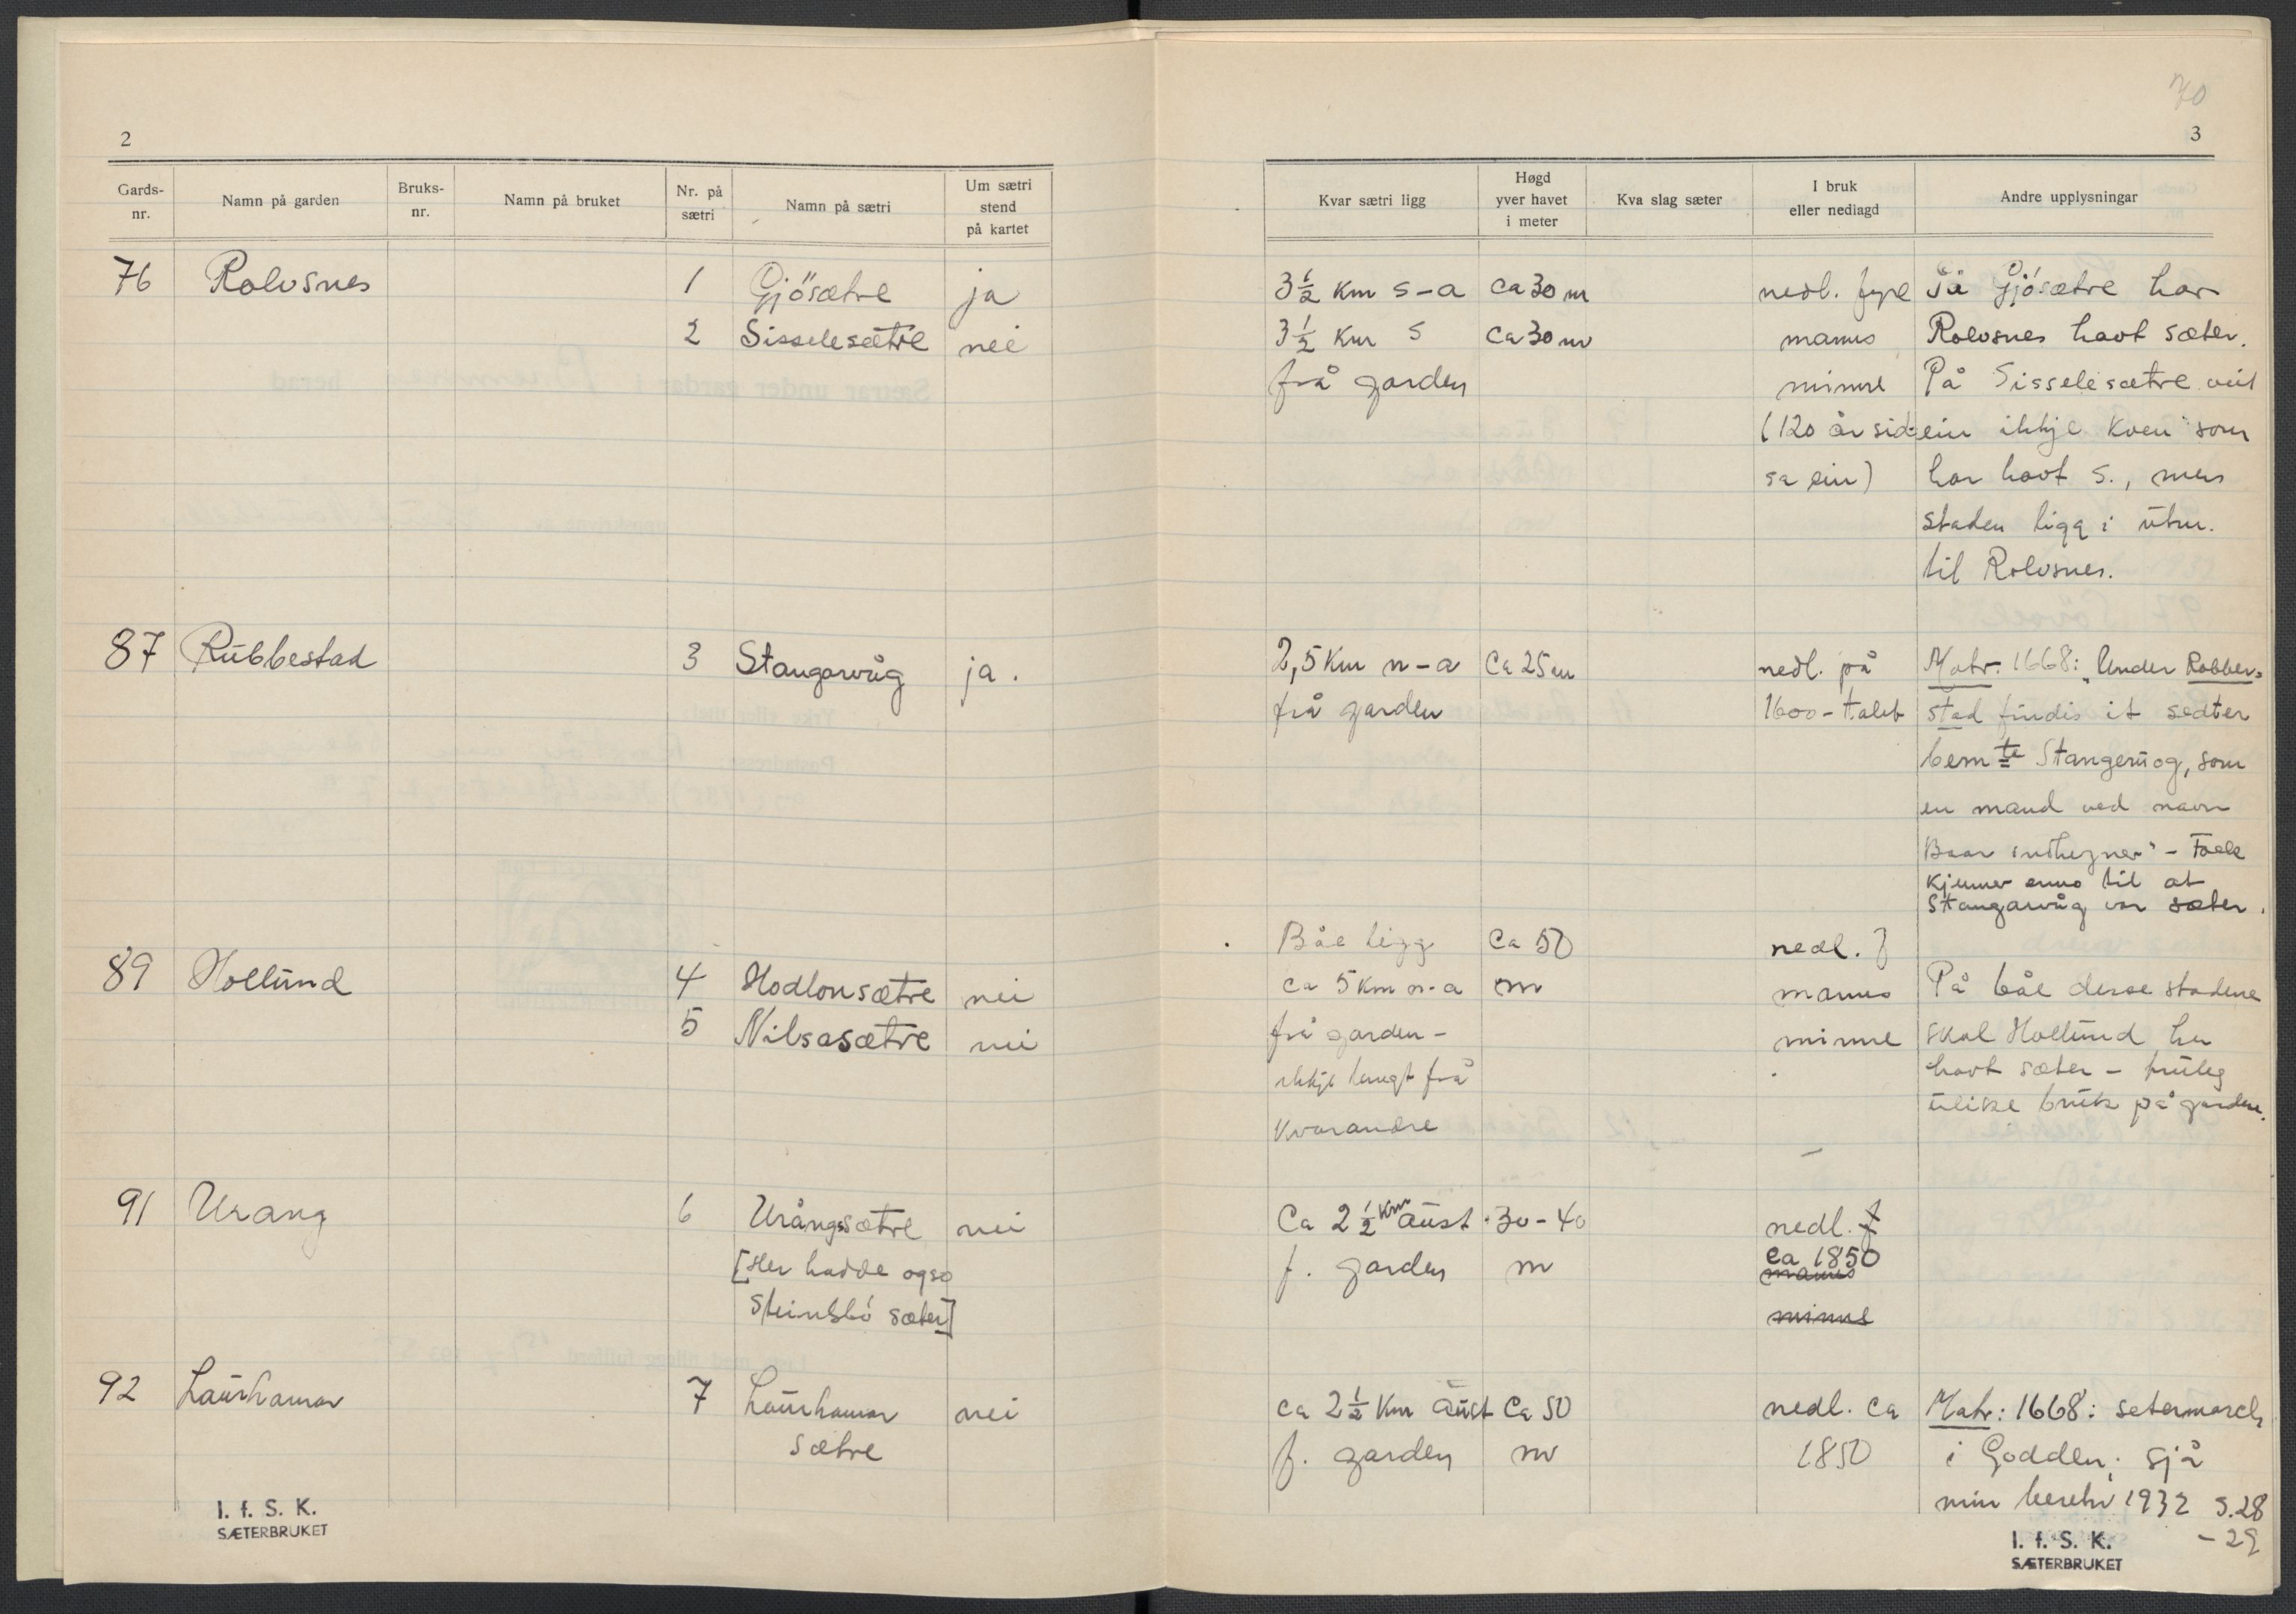 2
Gards-nr. Namn på garden Bruks-nr. Namn på bruket Nr. på sætri Namn på sætri Um sætri stend på kartet
76 Rolvsnes 1 Gjösætre ja
2 Sisselesætre nei
87 Rubbestad 3 Stangarvåg ja.
89 Hollund 4 Hodlonsætre nei
5 Nilsasætre nei
91 Urang 6 Urångssætre nei
[Her hadde også
Steinsbö sæter]
92 Laurhamar 7 Laurhamar nei
sætre
I. f. S. K.
SÆTERBRUKET
70
3
Kvar sætri ligg Høgd yver havet i meter Kva slag sæter I bruk eller nedlagd Andre upplysningar
3½ km s-a ca 30 m nedl. fyre På Gjösætre har
3½ km s ca 30 m manns Rolvsnes havt sæter.
frå garden minne På Sisselesætre veit
(120 år sid: ein ikkje kven som
sa ein) har havt s., men
staden ligg i utm.
til Rolvsnes.
2,5 km n-a ca 25 m nedl. på Matr. 1668: "Under Robber=
frå garden 1600-talet stad findis it sedter
bemte Stangeuog, som
en mand ved navn
Baar inthegner" - Folk
kjenner enno til at
Stangarvåg var sæter.
Båe ligg ca 50 nedl. f
ca 5 km n-a m manns På båe desse stadene
frå garden - minne skal Hollund ha
ikkje langt frå havt sæter - truleg
kvarandre ulike bruk på garden.
Ca 2½ km aust 30-40 nedl. f
f. garden m ca 1850
manns
minne
ca 2½ km aust ca 50 nedl. ca Matr: 1668: setermarch
f. garden m 1850 i Godden; sjå
min beretn 1932 s. 28
- 29
I. f. S. K.
SÆTERBRUKET